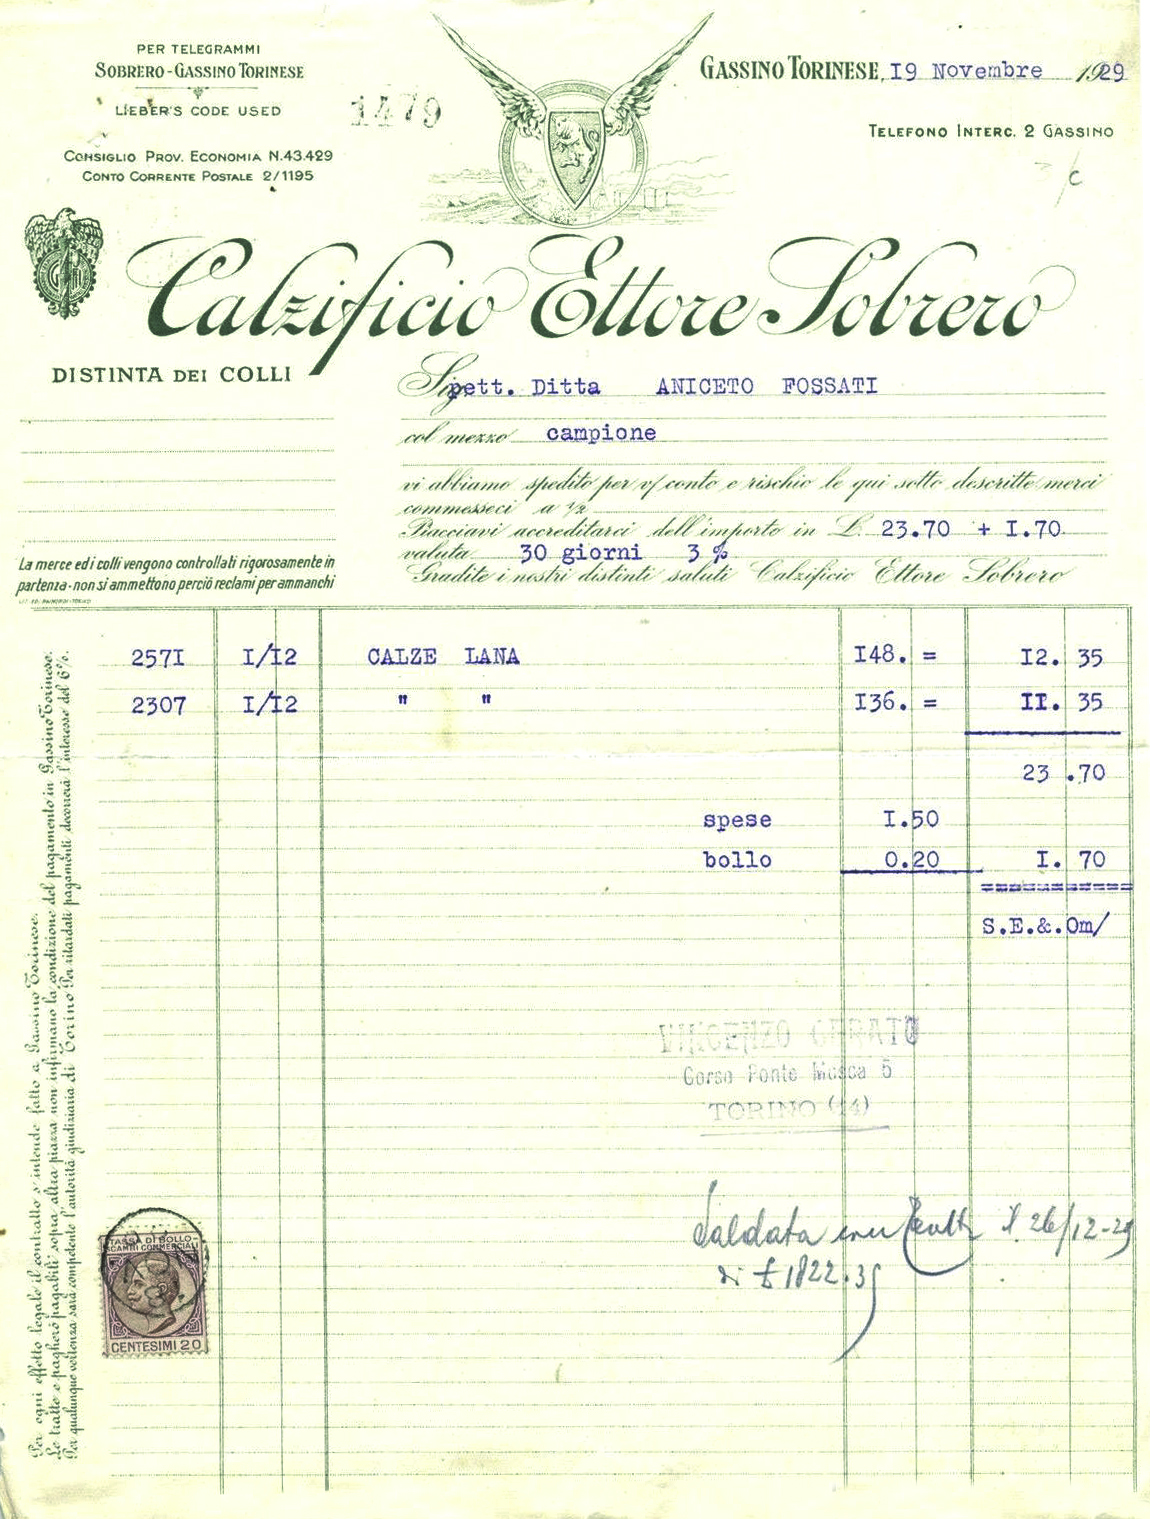 PER TELEGRAMMI
SOBRERO-GASSINO TORINESE
LIEBER'S CODE USED
CONSIGLIO PROV. ECONOMIA N.43.429
CONTO CORRENTE POSTALE 2/1195
1479
GASSINO TORINESE, I9 Novembre 1929
TELEFONO INTERC. 2 GASSINO
Calzificio Ettore Sobrero
DISTINTA DEI COLLI
Sig. pett. Ditta ANICETO FOSSATI
col mezzo campione
vi abbiamo spedito per v/ conto e rischio le qui sotto descritte merci
commesseci a ½
Piacciavi accreditarci dell'importo in L. 23.70 + I.70
valuta 30 giorni 3 %
Gradite i nostri distinti saluti Calzificio Ettore Sobrero
La merce ed i colli vengono controllati rigorosamente in
partenza - non si ammettono perciò reclami per ammanchi
257I I/I2 CALZE LANA I48. = I2. 35
2307 I/I2 " " I36. = II. 35
23 .70
spese I.50
bollo 0.20 I. 70
S.E.&.Om/
VINCENZO CERATO
Corso Ponte Mosca 5
TORINO (14)
Saldata il 26/12-29
di £ 1822.35
TASSA DI BOLLO
SCAMBI COMMERCIALI
CENTESIMI 20
Per ogni effetto legale il contratto s'intende fatto a Gassino Torinese.
Le tratte o pagherò pagabili sopra altra piazza non infirmano la condizione del pagamento in Gassino Torinese.
Per qualunque vertenza sarà competente l'autorità giudiziaria di Torino Per ritardati pagamenti decorrerà l'interesse del 6%.